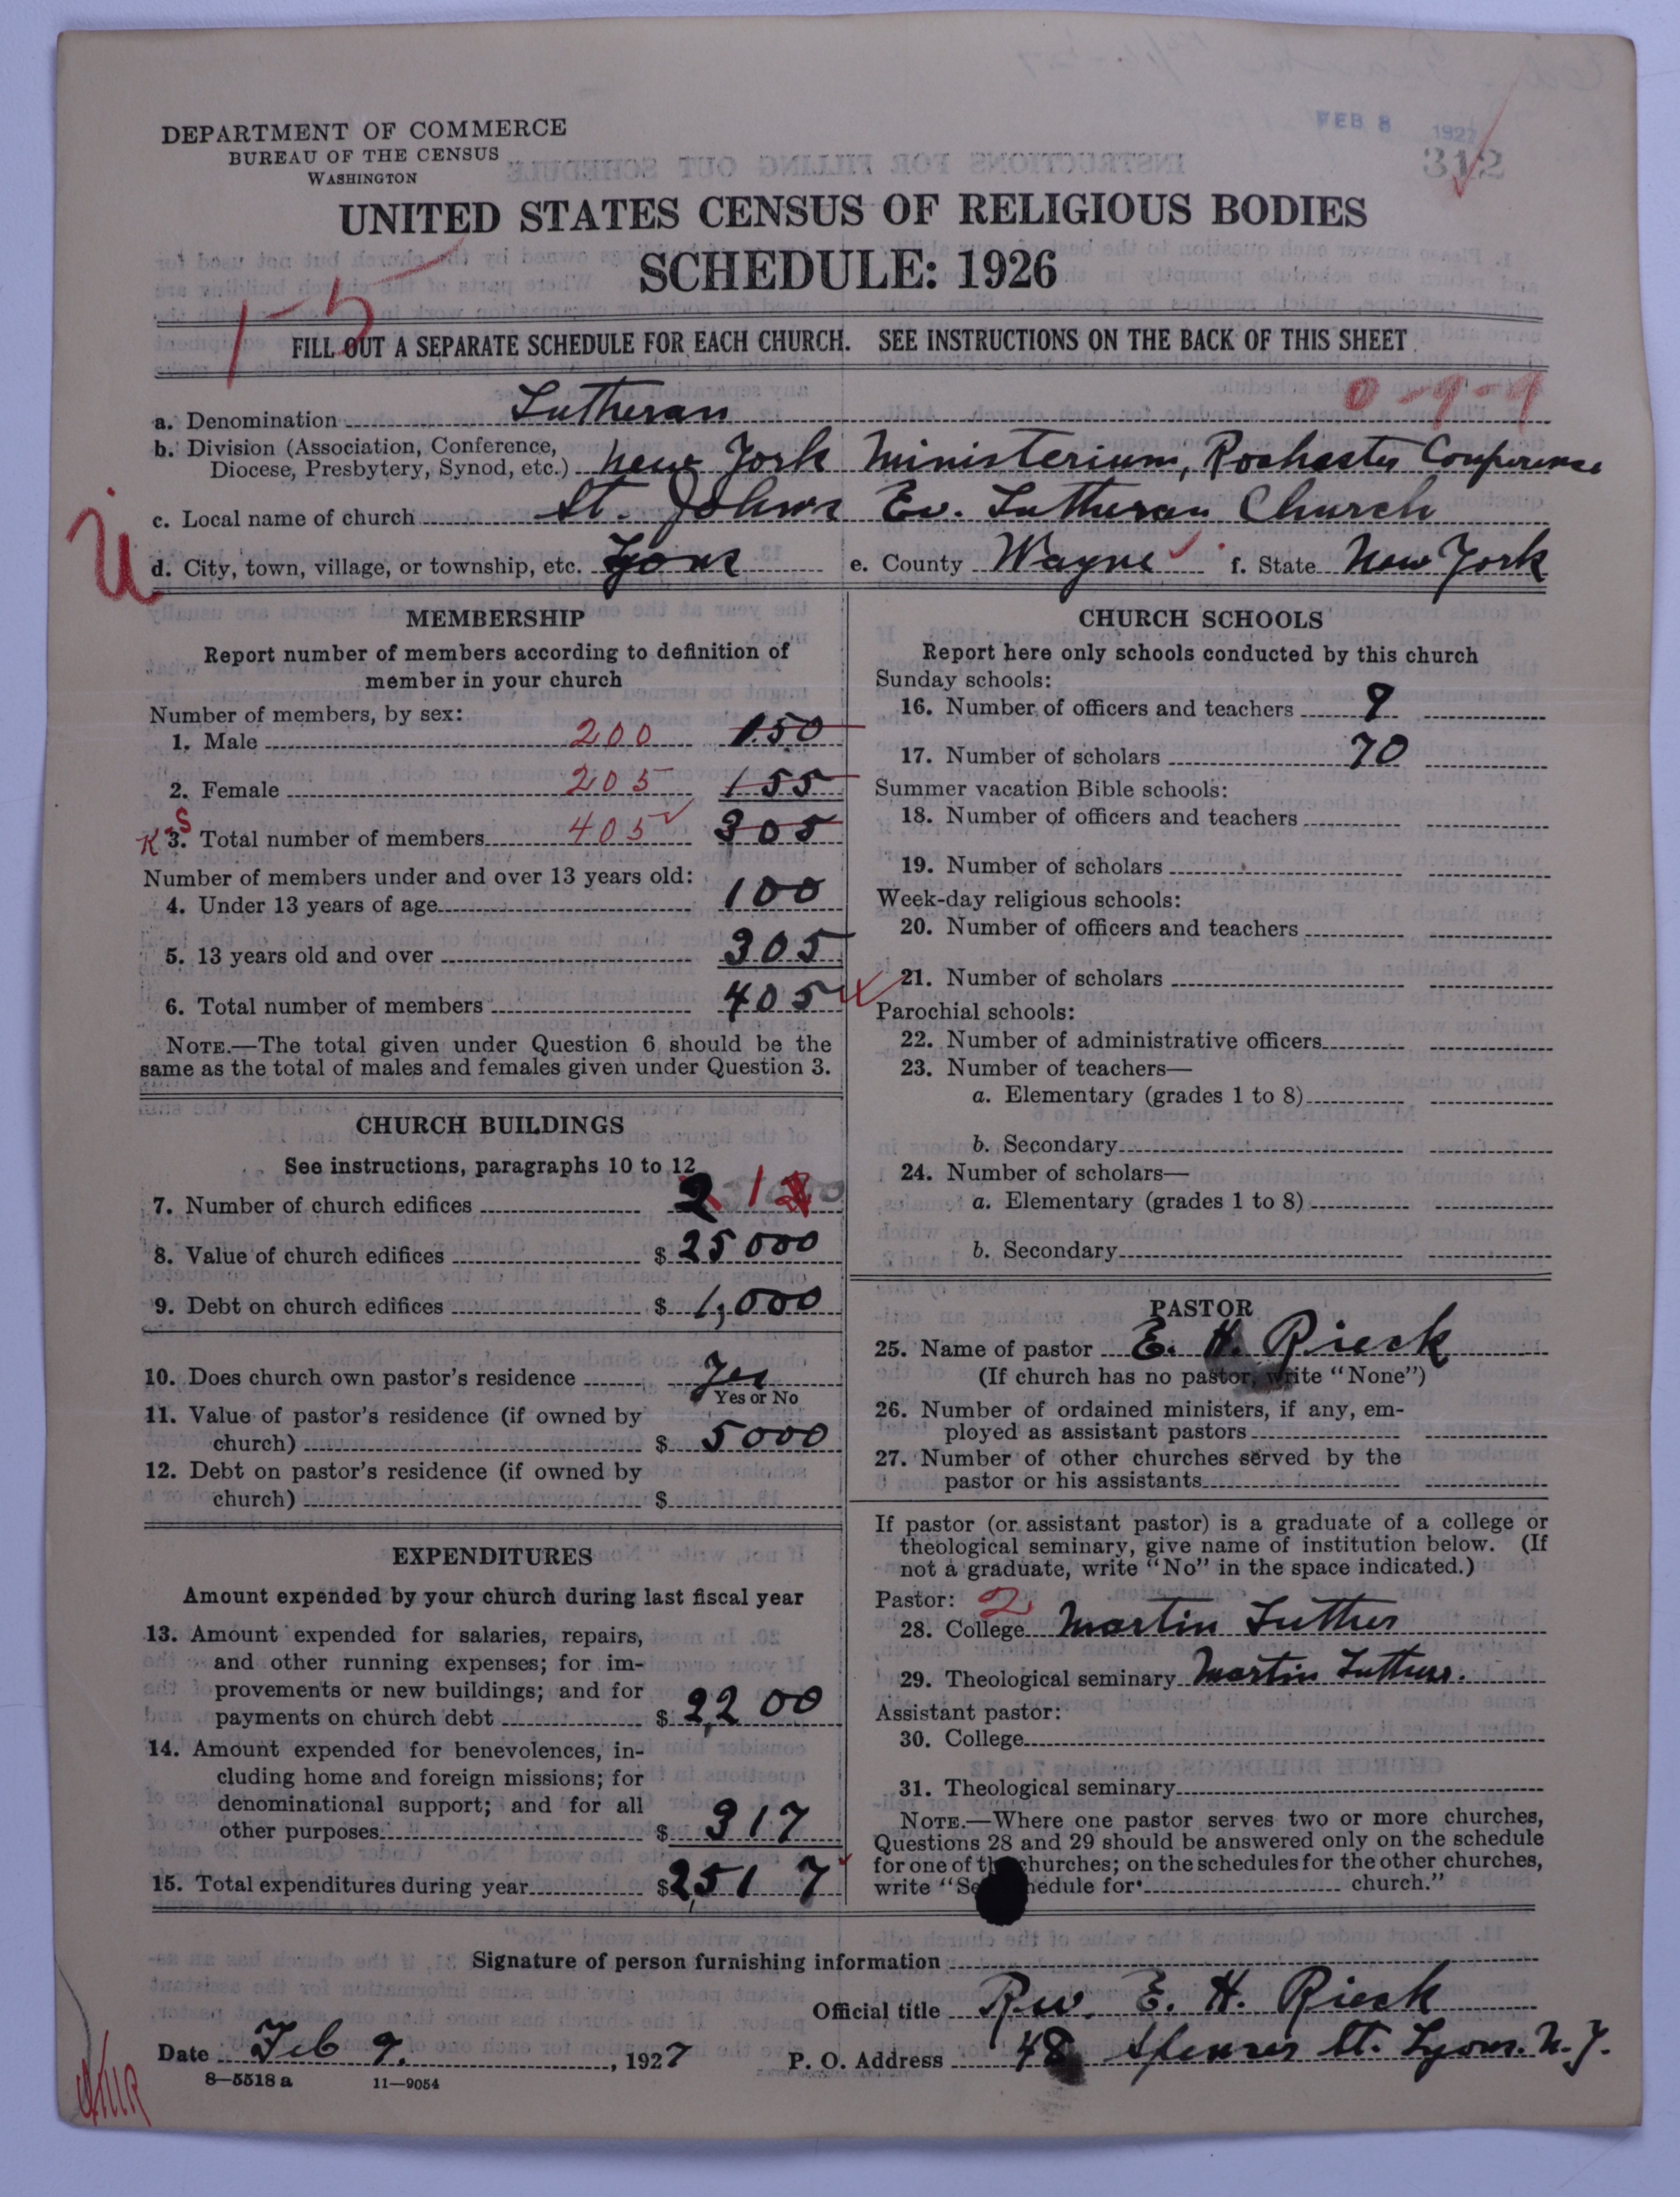 FEB 8 1927
312
DEPARTMENT OF COMMERCE
BUREAU OF THE CENSUS
WASHINGTON
UNITED STATES CENSUS OF RELIGIOUS BODIES
SCHEDULE: 1926
1-5
FILL OUT A SEPARATE SCHEDULE FOR EACH CHURCH. SEE INSTRUCTIONS ON THE BACK OF THIS SHEET
0-9-9
a. Denomination Lutheran
b. Division (Association, Conference,
Diocese, Presbytery, Synod, etc.) New York Ministerium, Rochester Conference
c. Local name of church St. Johns Ev. Lutheran Church
U
d. City, town, village, or township, etc. Lyons e. County Wayne f. State New York
MEMBERSHIP
Report number of members according to definition of
member in your church
Number of members, by sex:
1. Male 200 150
2. Female 205 155
K S 3. Total number of members 405 305
Number of members under and over 13 years old:
4. Under 13 years of age 100
5. 13 years old and over 305
6. Total number of members 405
NOTE.—The total given under Question 6 should be the
same as the total of males and females given under Question 3.
CHURCH BUILDINGS
See instructions, paragraphs 10 to 12
7. Number of church edifices 2 1
8. Value of church edifices $ 25000
9. Debt on church edifices $ 1,000
10. Does church own pastor's residence Yes
Yes or No
11. Value of pastor's residence (if owned by
church) $ 5000
12. Debt on pastor's residence (if owned by
church) $
EXPENDITURES
Amount expended by your church during last fiscal year
13. Amount expended for salaries, repairs,
and other running expenses; for im-
provements or new buildings; and for
payments on church debt $ 2,200
14. Amount expended for benevolences, in-
cluding home and foreign missions; for
denominational support; and for all
other purposes $ 317
15. Total expenditures during year $2,517
CHURCH SCHOOLS
Report here only schools conducted by this church
Sunday schools:
16. Number of officers and teachers 9
17. Number of scholars 70
Summer vacation Bible schools:
18. Number of officers and teachers
19. Number of scholars
Week-day religious schools:
20. Number of officers and teachers
21. Number of scholars
Parochial schools:
22. Number of administrative officers
23. Number of teachers—
a. Elementary (grades 1 to 8)
b. Secondary
24. Number of scholars—
a. Elementary (grades 1 to 8)
b. Secondary
PASTOR
25. Name of pastor E. H. Rieck
(If church has no pastor, write "None")
26. Number of ordained ministers, if any, em-
ployed as assistant pastors
27. Number of other churches served by the
pastor or his assistants
If pastor (or assistant pastor) is a graduate of a college or
theological seminary, give name of institution below. (If
not a graduate, write "No" in the space indicated.)
Pastor: 2
28. College Martin Luther
29. Theological seminary Martin Luther.
Assistant pastor:
30. College
31. Theological seminary
NOTE.—Where one pastor serves two or more churches,
Questions 28 and 29 should be answered only on the schedule
for one of the churches; on the schedules for the other churches,
write "See schedule for church."
Signature of person furnishing information
Official title Rev. E. H. Rieck
Date Feb 9, 1927 P. O. Address 48 Spencer St. Lyons. N.Y.
8—5518 a 11—9054